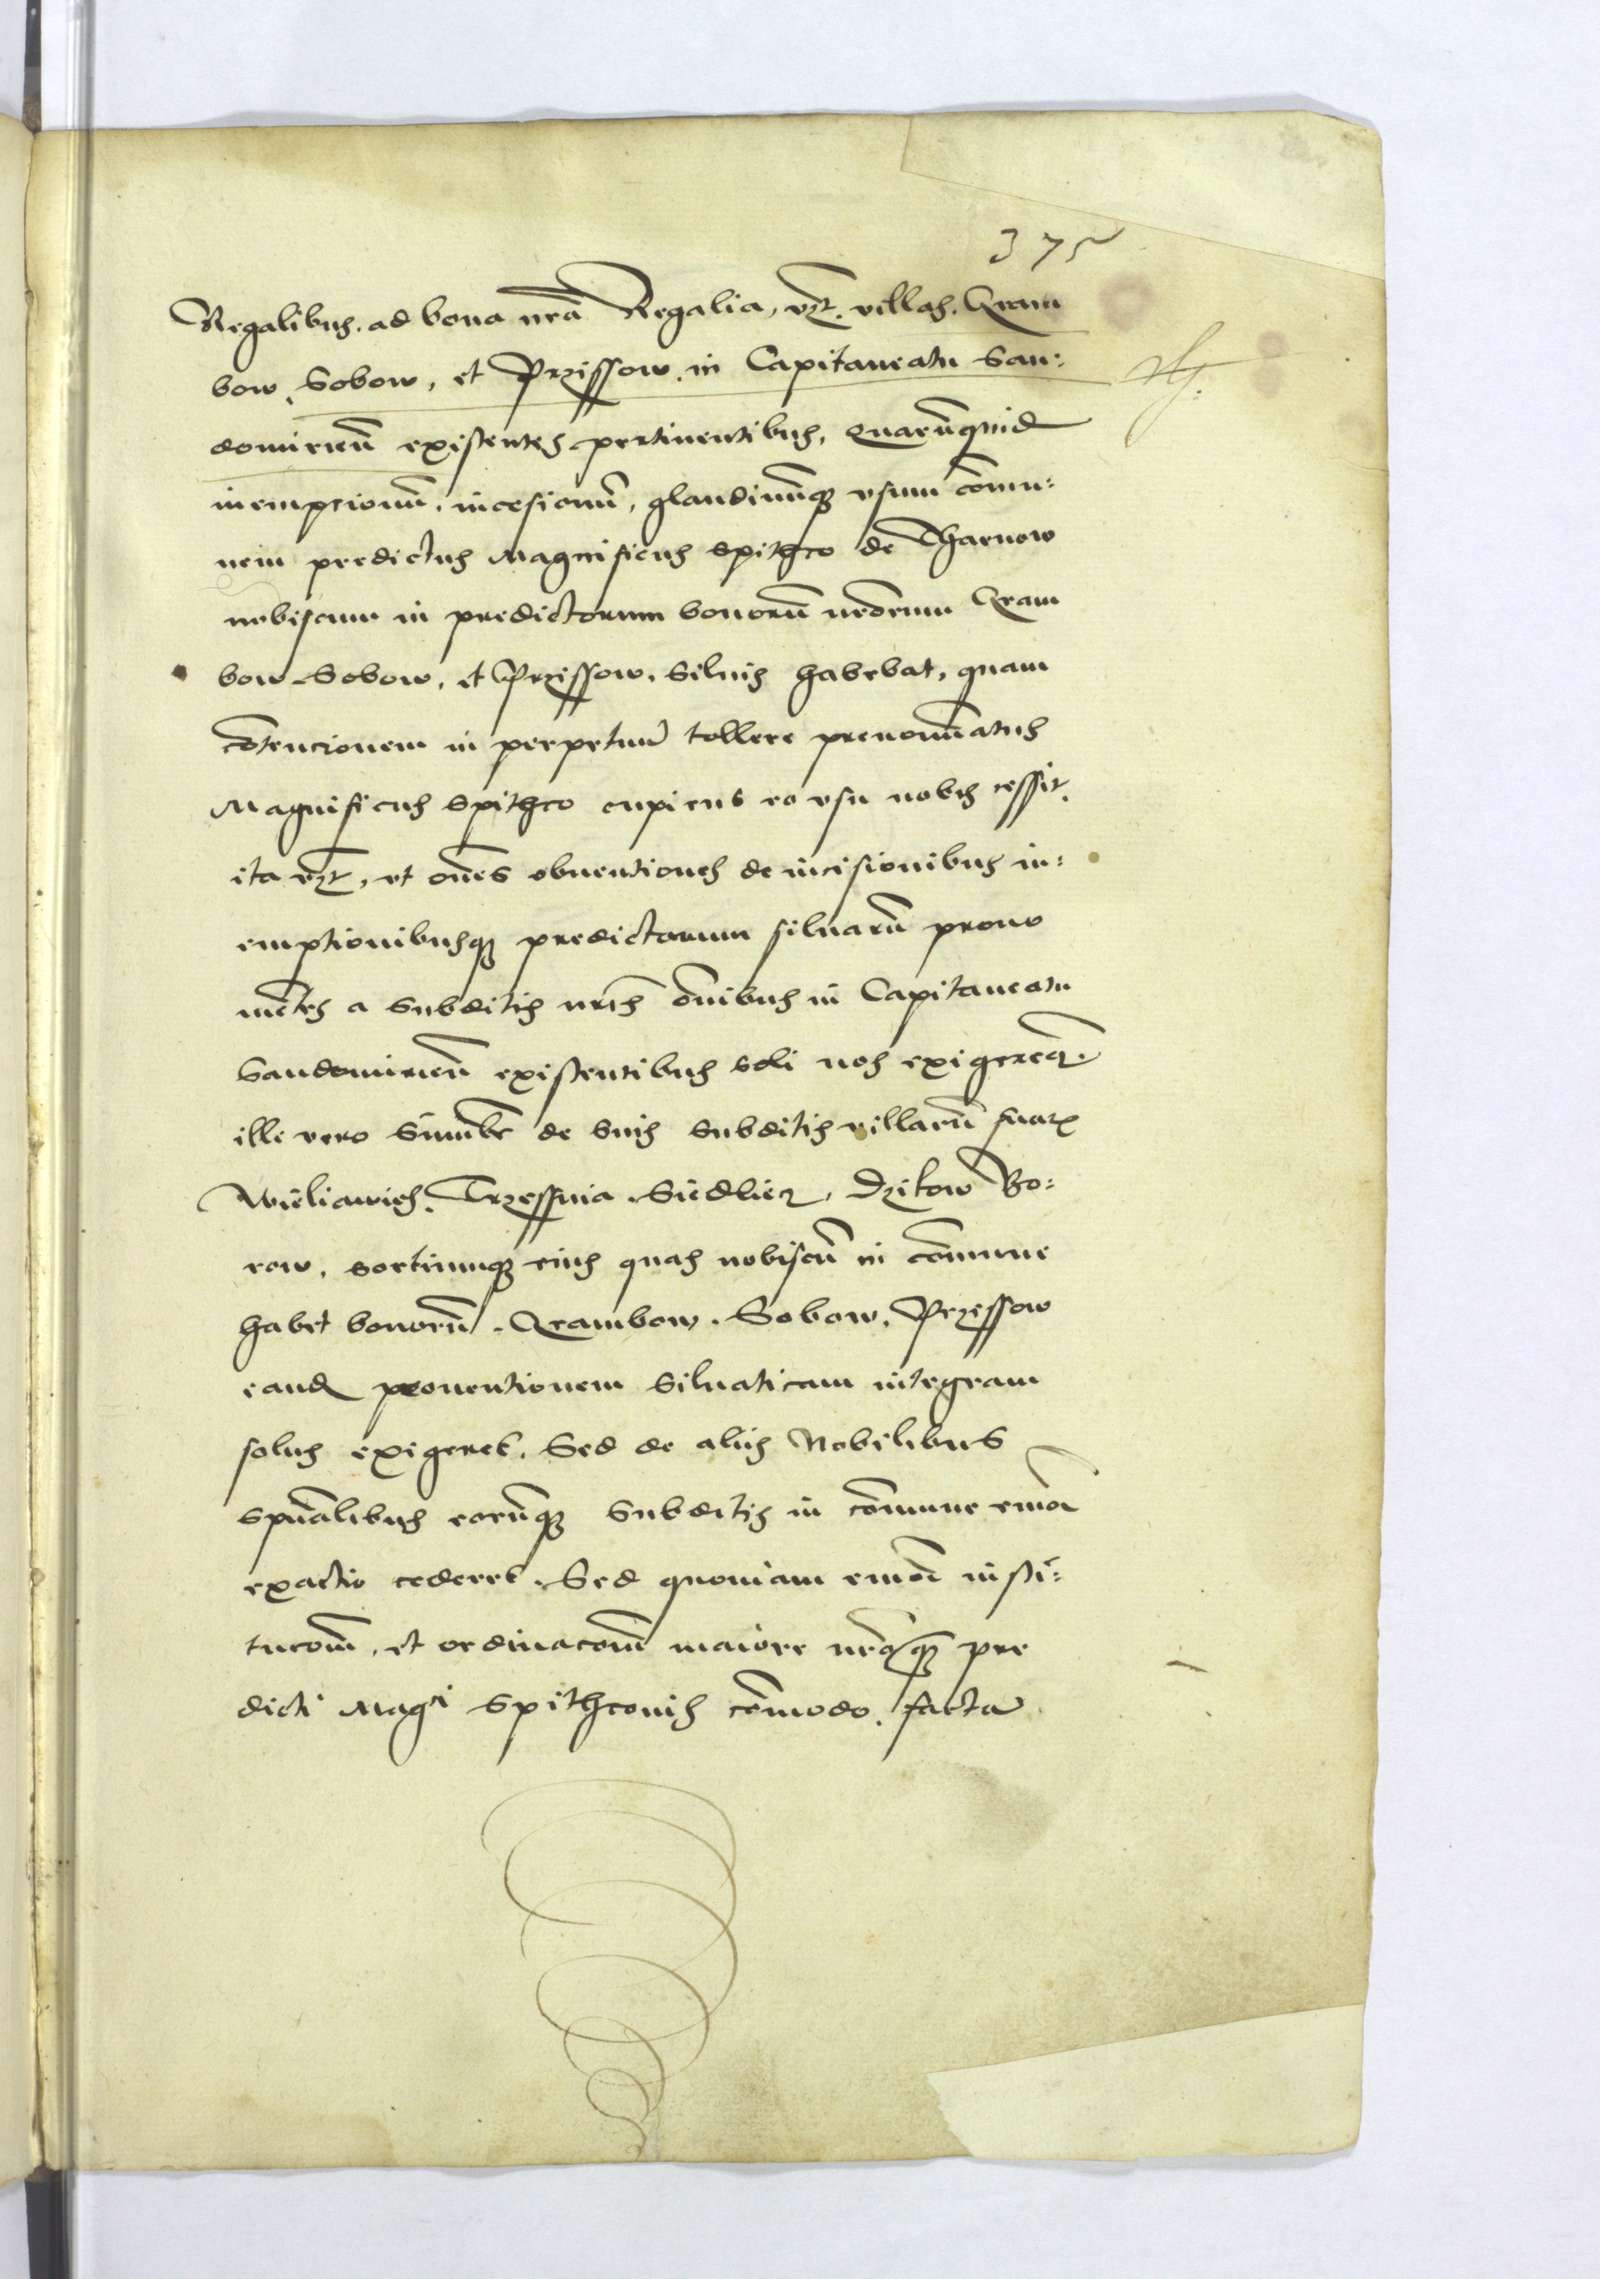 375
Regalibus, ad bona nrã Regalia, vz. villas. Gram
bow, Sobow, et Przissow, in Capitaneatu San:
domirieñ existentes pertinentibus, quarũquid
inempcionũ, incesionũ, glandinũq3 vsum cõmu:
nem predictus Magnificus Spithco de Tharnow
nobiscum in predictorum bonorũ nrorum Gram
bow Sobow, et Przissow, siluis habebat, quam
cõtencionem in perpetuũ tollere prenomĩatus
Magnificus Spithco cupiens eo vsu nobis cessit,
ita vz, vt oẽs obuentiones de incisionibus in:
emptionibusq3 predictarum siluarũ proue
niẽtes a subditis nris oĩbus in Capitaneatu
Sandomirieñ existentibus soli nos exigeremᵒ
ille vero de suis subditis villarũ suarꝝ
Wieliawies, Trzessnia, Siedliecz, Dzikow Bo:
row, sortiumq3 eius quas nobiscũ in cõmune
habet bonorũ, Grambow, Sobow, Przessow
eand prouentionem siluaticam integram
solus exigeret. Sed de aliis Nobilibus
spũalibus eorũq3 subditis in cõmune
exactio cederet. Sed quoniam insti:
tucõm, et ordinacõm maiore pre
dicti Magci Spithconis cõmodo, facta